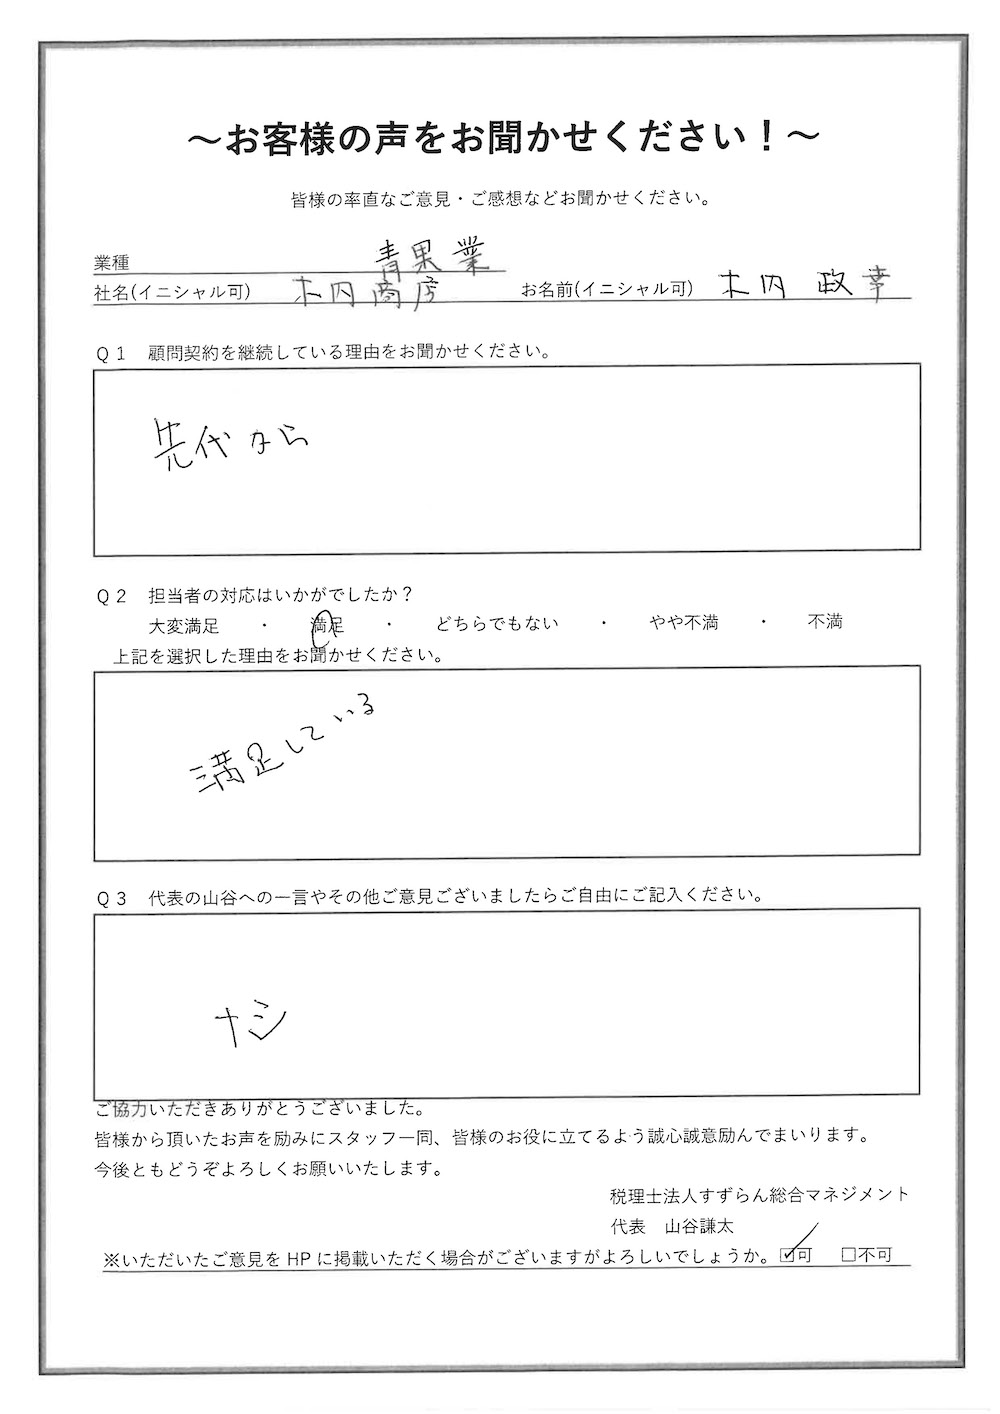 ～お客様の声をお聞かせください！～
皆様の率直なご意見・ご感想などお聞かせください。
業種 青果業
社名(イニシャル可) 木内商店 お名前(イニシャル可) 木内 政幸
Ｑ１ 顧問契約を継続している理由をお聞かせください。
先代から
Ｑ２ 担当者の対応はいかがでしたか？
大変満足 ・ 満足 ・ どちらでもない ・ やや不満 ・ 不満
上記を選択した理由をお聞かせください。
満足している
Ｑ３ 代表の山谷への一言やその他ご意見ございましたらご自由にご記入ください。
ナシ
ご協力いただきありがとうございました。
皆様から頂いたお声を励みにスタッフ一同、皆様のお役に立てるよう誠心誠意励んでまいります。
今後ともどうぞよろしくお願いいたします。
税理士法人すずらん総合マネジメント
代表 山谷謙太
※いただいたご意見を HP に掲載いただく場合がございますがよろしいでしょうか。☑可 □不可